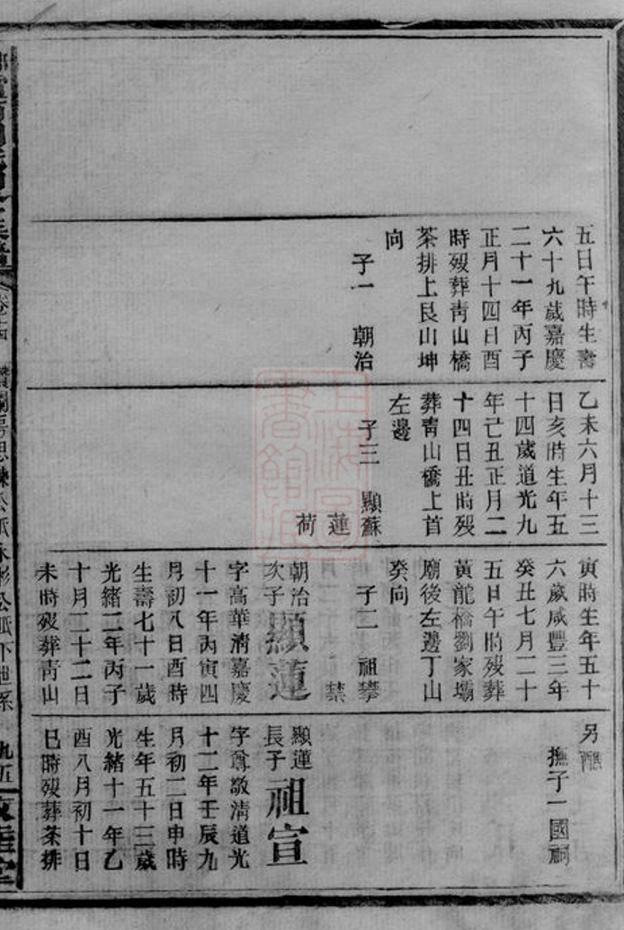 五日午時生壽
六十九歲嘉慶
二十一年丙子
正月十四日酉
時歿葬青山橋
茶排上艮山坤
向
子一 朝治
乙未六月十三
日亥時生年五
十四歲道光九
年己丑正月二
十四日丑時歿
葬青山橋上首
左邊
子三 顯蘇
蓮
荷
寅時生年五十
六歲咸豐三年
癸丑七月二十
五日午時歿葬
黃龍橋劉家塌
廟後左邊丁山
癸向
子二 祖攀
禁
朝治
次子
顯蓮
字高華淸嘉慶
十一年丙寅四
月初八日酉時
生壽七十一歲
光緒二年丙子
十月二十二日
未時歿葬青山
另醮
撫子一國嗣
顯蓮
長子
祖宣
字尊敬淸道光
十二年壬辰九
月初二日申時
生年五十三歲
光緒十一年乙
酉八月初十日
巳時歿葬茶排
卷十四
公派永彬公派下世系
九五